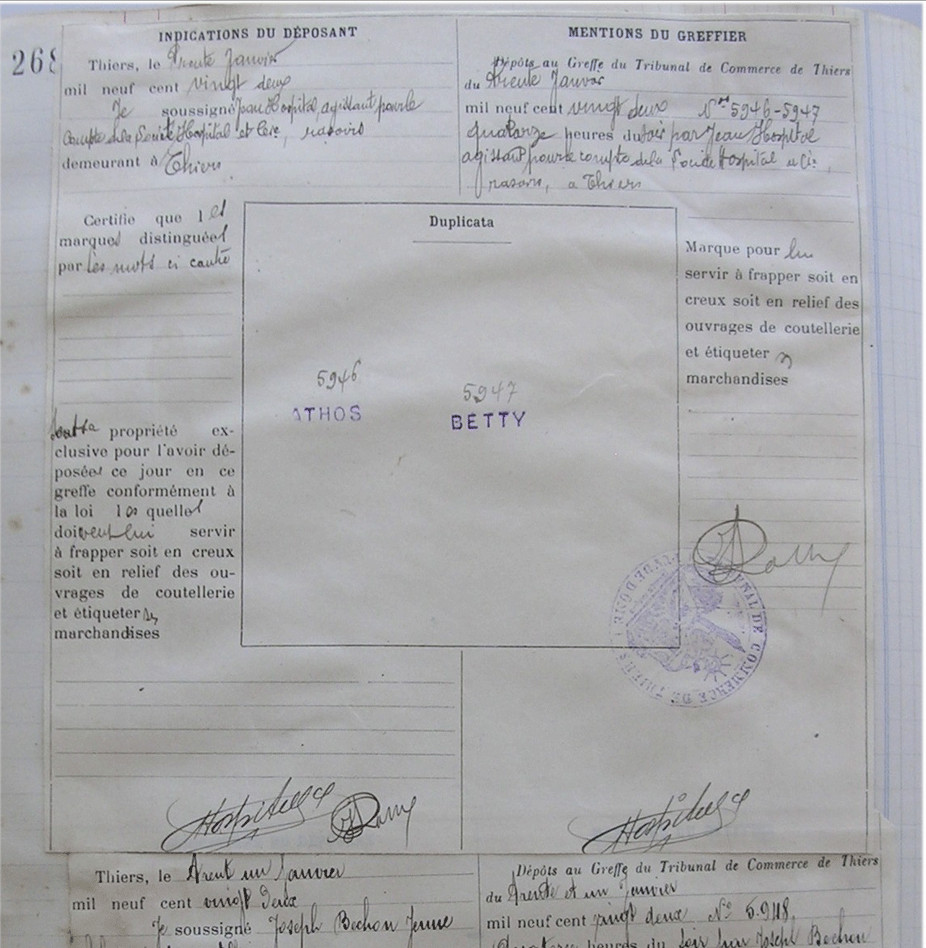 268
INDICATIONS DU DÉPOSANT
Thiers, le Trente Janvier
mil neuf cent vingt deux
Je soussigné Jean Hospital, agissant pour le
compte de la Société Hospital et Cie, rasoirs
demeurant à Thiers
Certifie que les
marques distinguées
par les mots ci contre
sont sa propriété ex-
clusive pour l'avoir dé-
posées ce jour en ce
greffe conformément à
la loi les quelles
doivent lui servir
à frapper soit en creux
soit en relief des ou-
vrages de coutellerie
et étiqueter ses
marchandises
MENTIONS DU GREFFIER
Dépôts au Greffe du Tribunal de Commerce de Thiers
du Trente Janvier
mil neuf cent vingt deux Nos 5946-5947
quatorze heures du soir par Jean Hospital
agissant pour le compte de la Société Hospital et Cie,
rasoirs, à Thiers
Duplicata
5946
ATHOS
5947
BETTY
Marque pour lui
servir à frapper soit en
creux soit en relief des
ouvrages de coutellerie
et étiqueter
marchandises
TRIBUNAL DE COMMERCE DE THIERS
PUY DE DOME
Hospital & Cie
Hospital & Cie
Thiers, le Trent un Janvier
mil neuf cent vingt Deux
Je soussigné Joseph Bechon Jeune
Dépôts au Greffe du Tribunal de Commerce de Thiers
du Trente et un Janvier
mil neuf cent vingt deux No 5.948.
heures du soir par Joseph Bechon